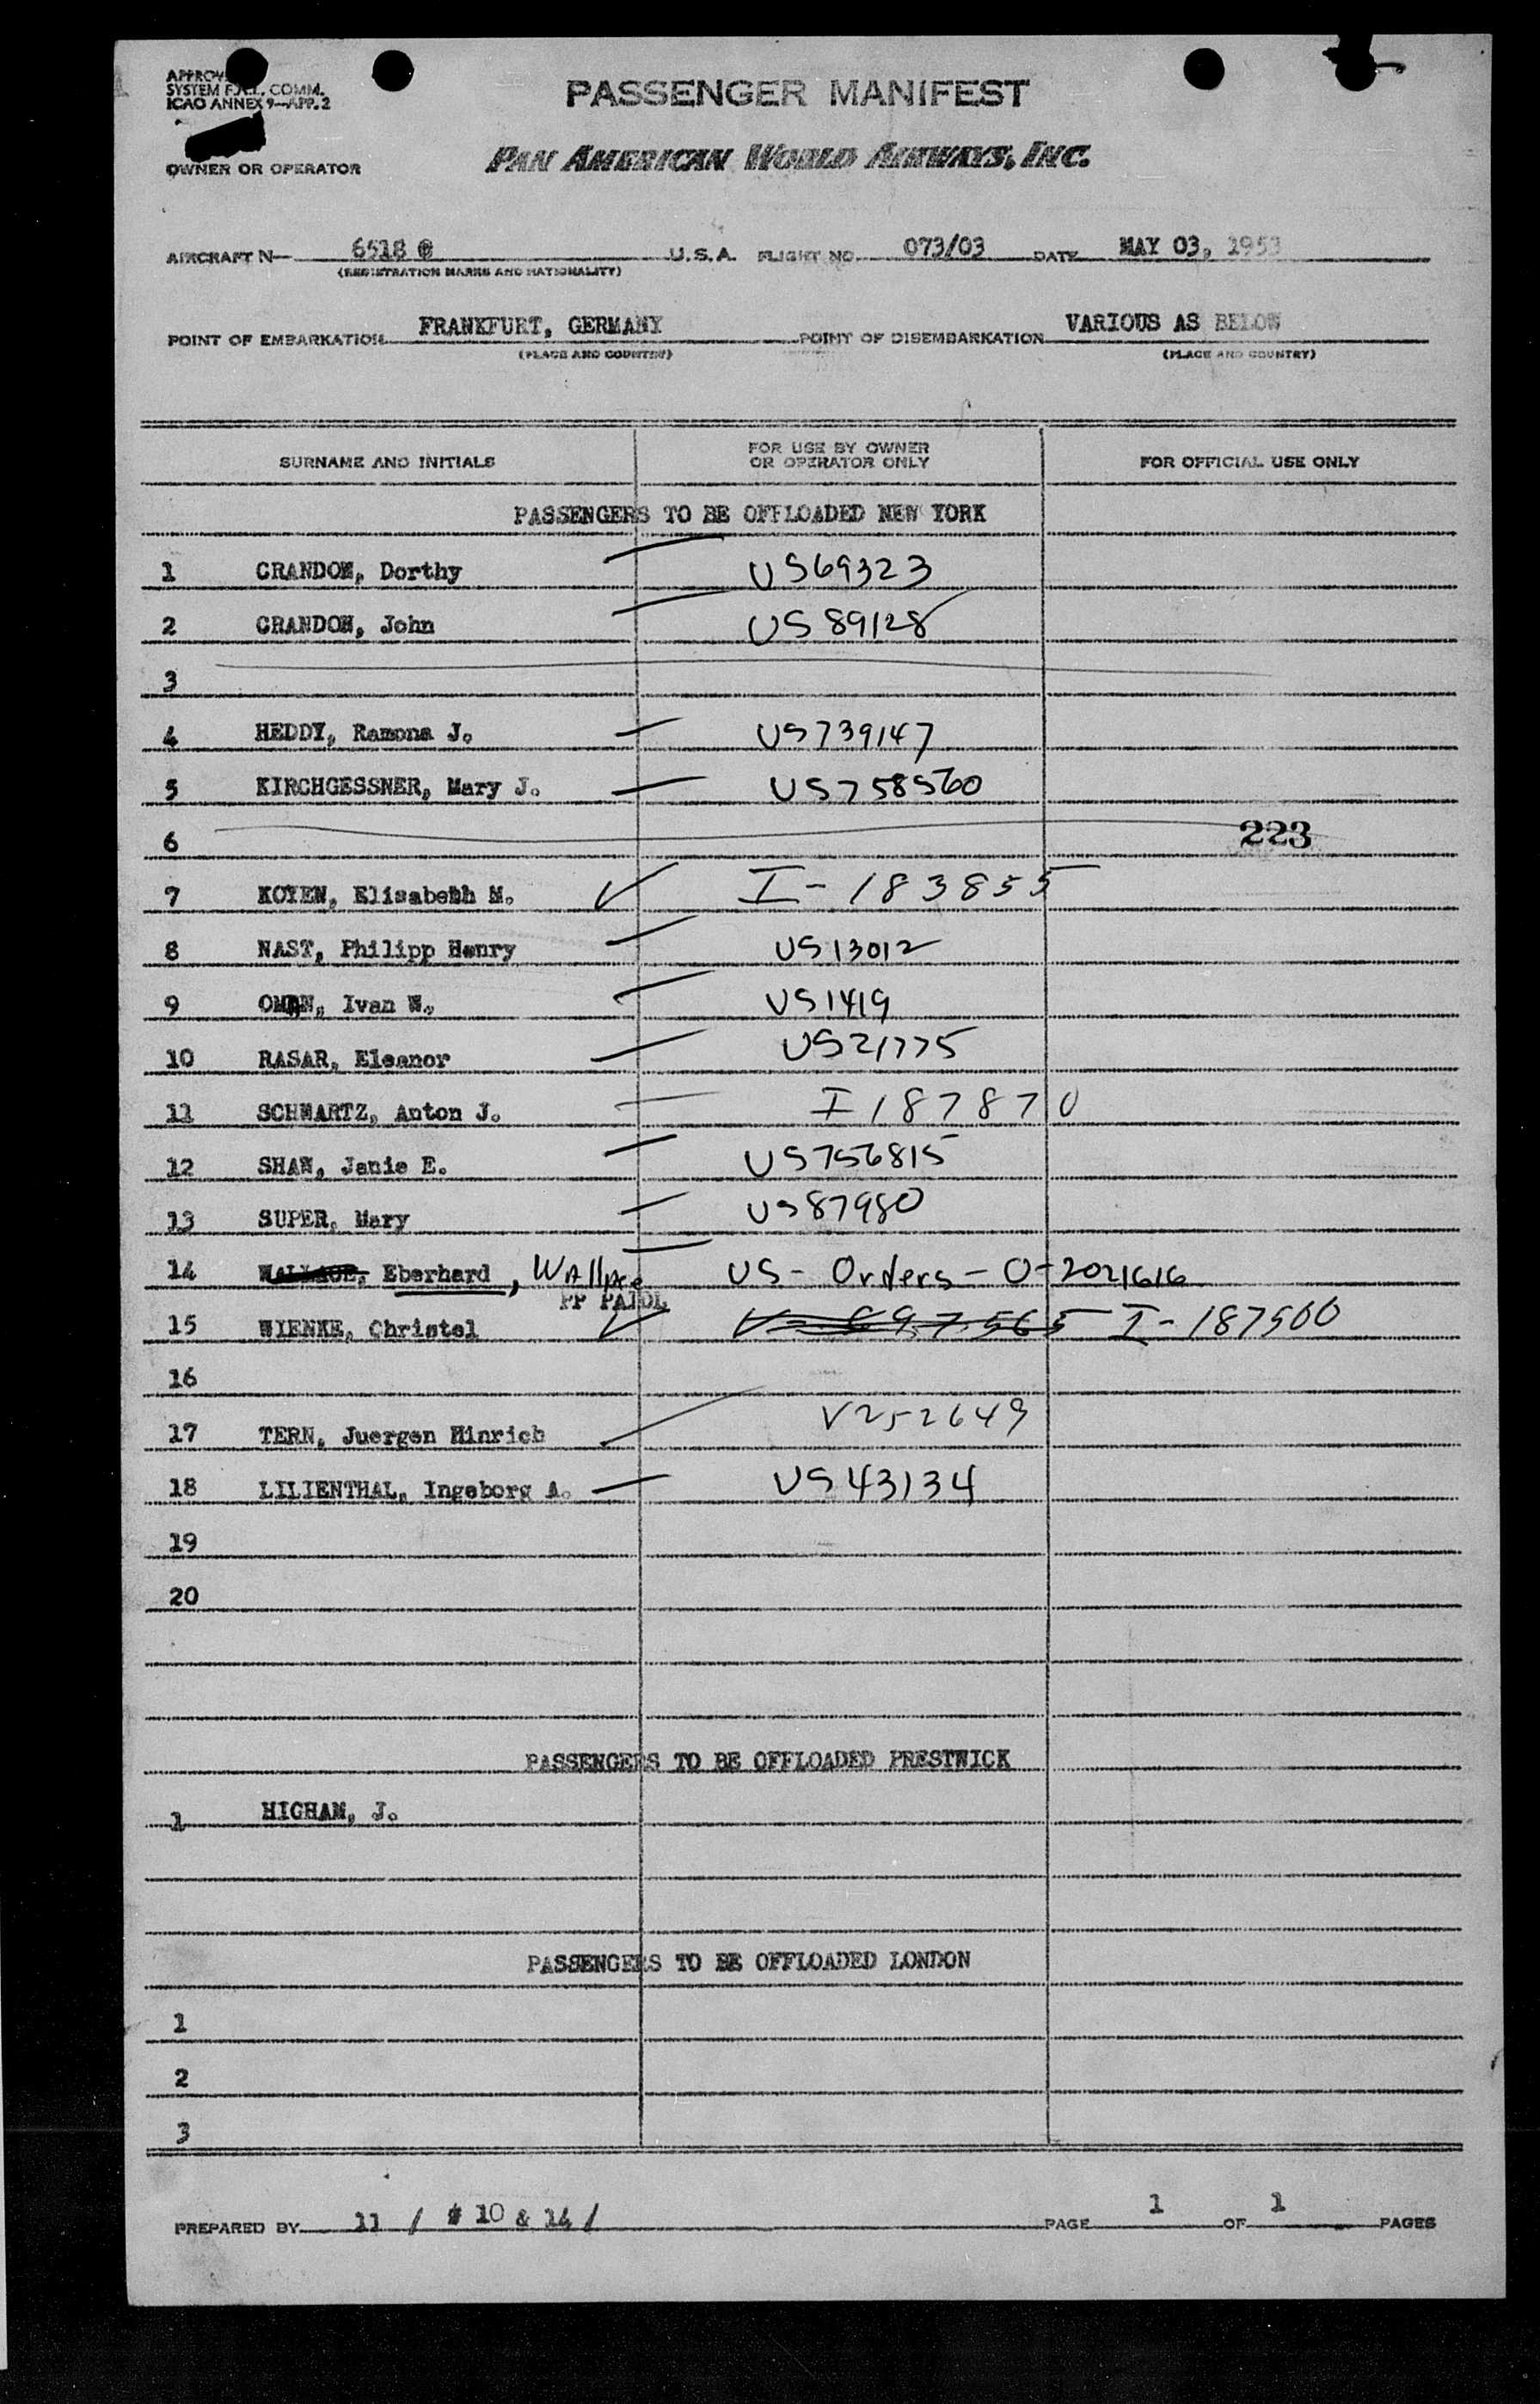 SYSTEM F.A.L. COMM.
ICAO ANNEX 9—APP. 2
PASSENGER MANIFEST
OWNER OR OPERATOR
PAN AMERICAN WORLD AIRWAYS, INC.
AIRCRAFT N— 6518 C U.S.A. FLIGHT NO. 073/03 DATE MAY 03, 1953
(REGISTRATION MARKS AND NATIONALITY)
POINT OF EMBARKATION FRANKFURT, GERMANY POINT OF DISEMBARKATION VARIOUS AS BELOW
(PLACE AND COUNTRY) (PLACE AND COUNTRY)
SURNAME AND INITIALS FOR USE BY OWNER OR OPERATOR ONLY FOR OFFICIAL USE ONLY
PASSENGERS TO BE OFFLOADED NEW YORK
1 CRANDON, Dorthy US69323
2 CRANDON, John US 89128
3
4 HEDDY, Ramona J. US739147
5 KIRCHGESSNER, Mary J. US758560
6 223
7 KOYEN, Elisabeth M. I-183855
8 NAST, Philipp Henry US13012
9 OMAN, Ivan W. US1419
10 RASAR, Eleanor US21775
11 SCHWARTZ, Anton J. I187870
12 SHAW, Janie E. US756815
13 SUPER, Mary US87980
14 WALLACE, Eberhard, Wallace US- Orders - O-2021616
PP PAIDL
15 WIENKE, Christel V-897565 I-187500
16
17 TERN, Juergen Hinrich V252649
18 LILIENTHAL, Ingeborg A. US43134
19
20
PASSENGERS TO BE OFFLOADED PRESTWICK
1 HIGHAM, J.
PASSENGERS TO BE OFFLOADED LONDON
1
2
3
PREPARED BY 11 / # 10 & 14 / PAGE 1 OF 1 PAGES